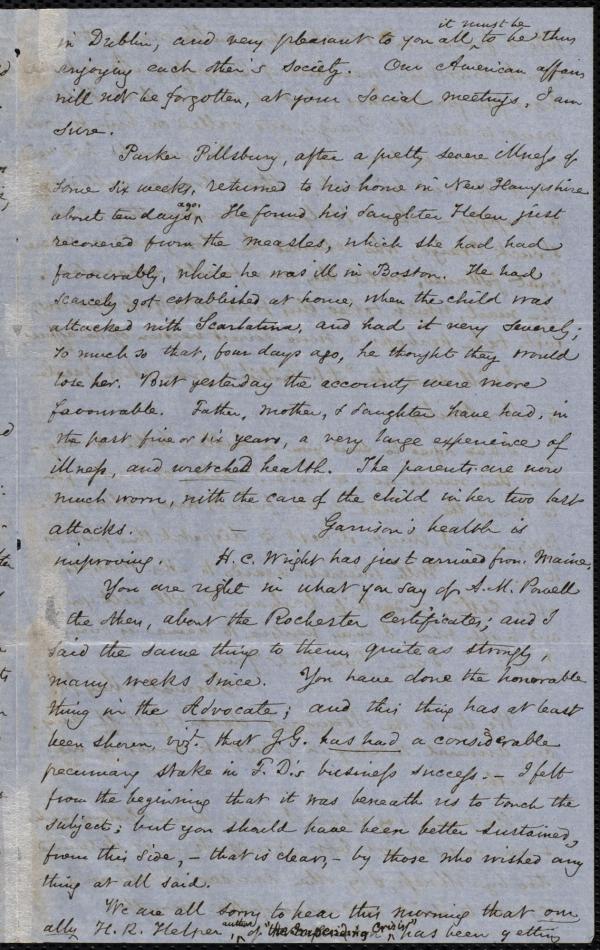 it must be
in Dublin, and very pleasant to you all to be thus
enjoying each other's society. Our American affairs
will not be forgotten, at your social meetings, I am
sure.
Parker Pillsbury, after a pretty severe illness of
some six weeks, returned to his home in New Hampshire
about ten days ago. He found his daughter Helen just
recovered from the measles, which she had had
favourably, while he was ill in Boston. He had
scarcely got established at home, when the child was
attacked with Scarlatina, and had it very severely;
so much so that, four days ago, he thought they would
lose her. But yesterday the accounts were more
favourable. Father, mother, & daughter have had, in
the past five or six years, a very large experience of
illness, and wretched health. The parents are now
much worn, with the care of the child in her two last
attacks. — Garrison's health is
improving. H. C. Wright has just arrived from Maine.
You are right in what you say of A. M. Powell
the other, about the Rochester Certificate; and I
said the same thing to them, quite as strongly,
many weeks since. You have done the honorable
thing in the Advocate; and this thing has at least
been shown, viz. that J.G. has had a considerable
pecuniary stake in F. D.'s business success. — I felt
from the beginning that it was beneath us to touch the
subject; but you should have been better sustained,
from this side, — that is clear, — by those who wished any
thing at all said.
We are all sorry to hear this morning that our
ally H. R. Helper, author of "the Impending Crisis", has been getting